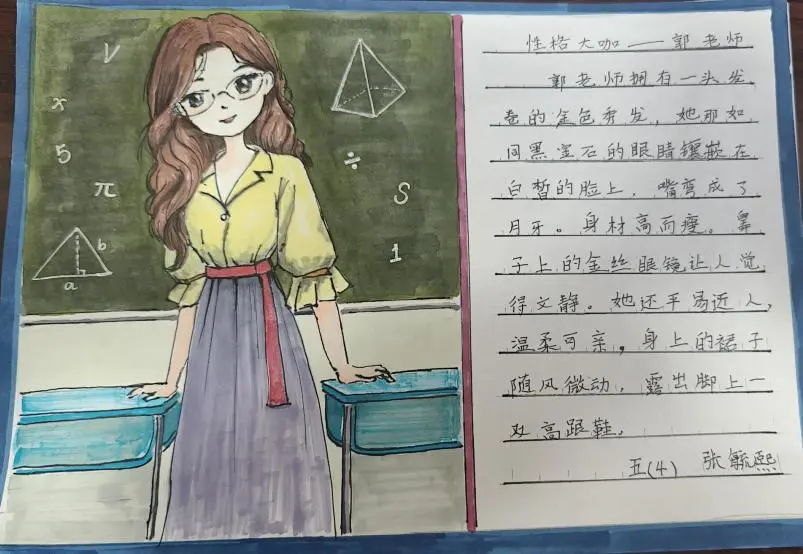 V
x
5
π
÷
S
1
b
a
性格大咖——郭老师
郭老师拥有一头发
卷的金色秀发，她那如
同黑宝石的眼睛镶嵌在
白皙的脸上，嘴弯成了
月牙。身材高而瘦。鼻
子上的金丝眼镜让人觉
得文静。她还平易近人，
温柔可亲。身上的裙子
随风微动，露出脚上一
双高跟鞋。
五(4) 张毓熙